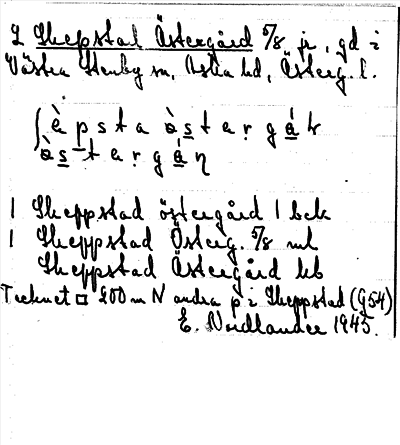 Skeppstad Östergård 5/8 jr, gd i
Västra Stenby sn, Aska hd, Österg. l.
ʃèpsta òstergák
òstergáṇ
1 Skeppstad östergård 1 bek
1 Skeppstad Österg. 5/8 ml
Skeppstad Östergård kb
Tecknet □ 200 m N andra p i Skeppstad (G54)
E. Nordlander 1945.